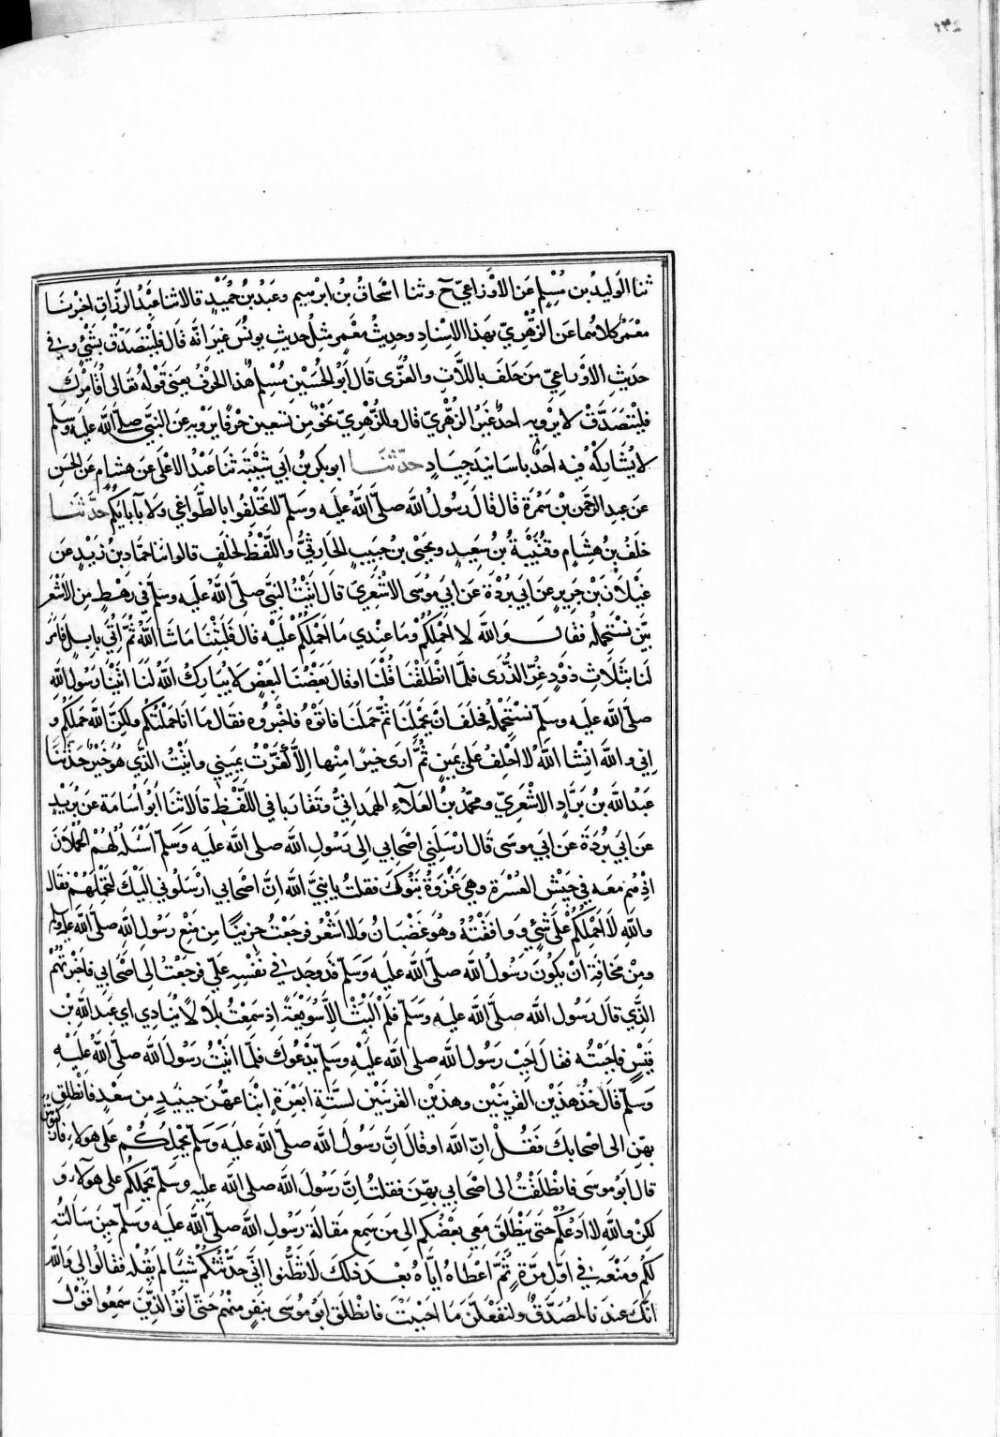 ثنا الوليد بن مسلم عن الاوزاعي ح وثنا اسحاق بن ابرهيم وعبد بن حميد قالا ثنا عبد الرزاق اخبرنا
معمر كلاهما عن الزهري بهذا الاسناد وحديث معمر مثل حديث يونس غير انه قال فليتصدق بشئ وفي
حديث الاوزاعي من حلف باللات والعزى قال ابو الحسين مسلم هذا الحرف يعنى قوله تعالى اقامرك
فليتصدق لا يرويه احد غير الزهري قال وللزهري نحو من تسعين حرفا يرويه عن النبي صلى الله عليه وسلم
لا يشاركه فيه احد باسانيد جياد حدثنا ابو بكر بن ابي شيبة ثنا عبد الاعلى عن هشام عن الحسن
عن عبد الرحمن بن سمرة قال قال رسول الله صلى الله عليه وسلم لا تحلفوا بالطواغي ولا بآبايكم حدثنا
خلف بن هشام وقتيبة بن سعيد ويحيى بن حبيب الحارثي واللفظ لخلف قالوا ثنا حماد بن زيد عن
غيلان بن جرير عن ابي بردة عن ابي موسى الاشعري قال اتيت النبي صلى الله عليه وسلم في رهط من الاشعر
يين نستحمله فقال والله لا احملكم وما عندي ما احملكم عليه قال فلبثنا ما شا الله ثم اتي بابل فامر
لنا بثلاث ذود غر الذرى فلما انطلقنا قلنا او قال بعضنا لبعض لا يبارك الله لنا اتينا رسول الله
صلى الله عليه وسلم نستحمله فحلف ان يحملنا ثم حملنا فاتوه فاخبروه فقال ما انا حملتكم ولكن الله حملكم و
اني والله انشا الله لا احلف على يمين ثم ارى خيرا منها الا كفرت يميني واتيت الذي هو خير حدثنا
عبد الله بن براد الاشعري ومحمد بن العلاء الهمداني وتقاربا في اللفظ قالا ثنا ابو اسامة عن بريد
عن ابي بردة عن ابي موسى قال ارسلني اصحابي الى رسول الله صلى الله عليه وسلم اسئله لهم الحملان
اذ هم معه في جيش العسرة وهي غزوة تبوك فقلت يا نبي الله ان اصحابي ارسلوني اليك لتحملهم فقال
والله لا احملكم على شئ ووافقته وهو غضبان ولا اشعر فرجعت حزينا من منع رسول الله صلى الله عليه وسلم
ومن مخافة ان يكون رسول الله صلى الله عليه وسلم قد وجد في نفسه علي فرجعت الى اصحابي فاخبرتهم
الذي قال رسول الله صلى الله عليه وسلم فلم البث الا سويعة اذ سمعت بلالا ينادي اي عبد الله بن
قيس فاجبته فقال اجب رسول الله صلى الله عليه وسلم يدعوك فلما اتيت رسول الله صلى الله عليه
وسلم قال خذ هذين القرينين وهذين القرينين لستة ابعرة ابتاعهن حينيذ من سعد فانطلق
بهن الى اصحابك فقل ان الله او قال ان رسول الله صلى الله عليه وسلم يحملكم على هولاء فاركبوهن
قال ابو موسى فانطلقت الى اصحابي بهن فقلت ان رسول الله صلى الله عليه وسلم يحملكم على هولاء و
لكن والله لا ادعكم حتى ينطلق معي بعضكم الى من سمع مقالة رسول الله صلى الله عليه وسلم حين سالته
لكم ومنعه في اول مرة ثم اعطاه اياه بعد ذلك لا تظنوا اني حدثتكم شيئا لم يقله فقالوا لي والله
انك عندنا لمصدق ولنفعلن ما احببت فانطلق ابو موسى بنفر منهم حتى اتوا الذين سمعوا قول